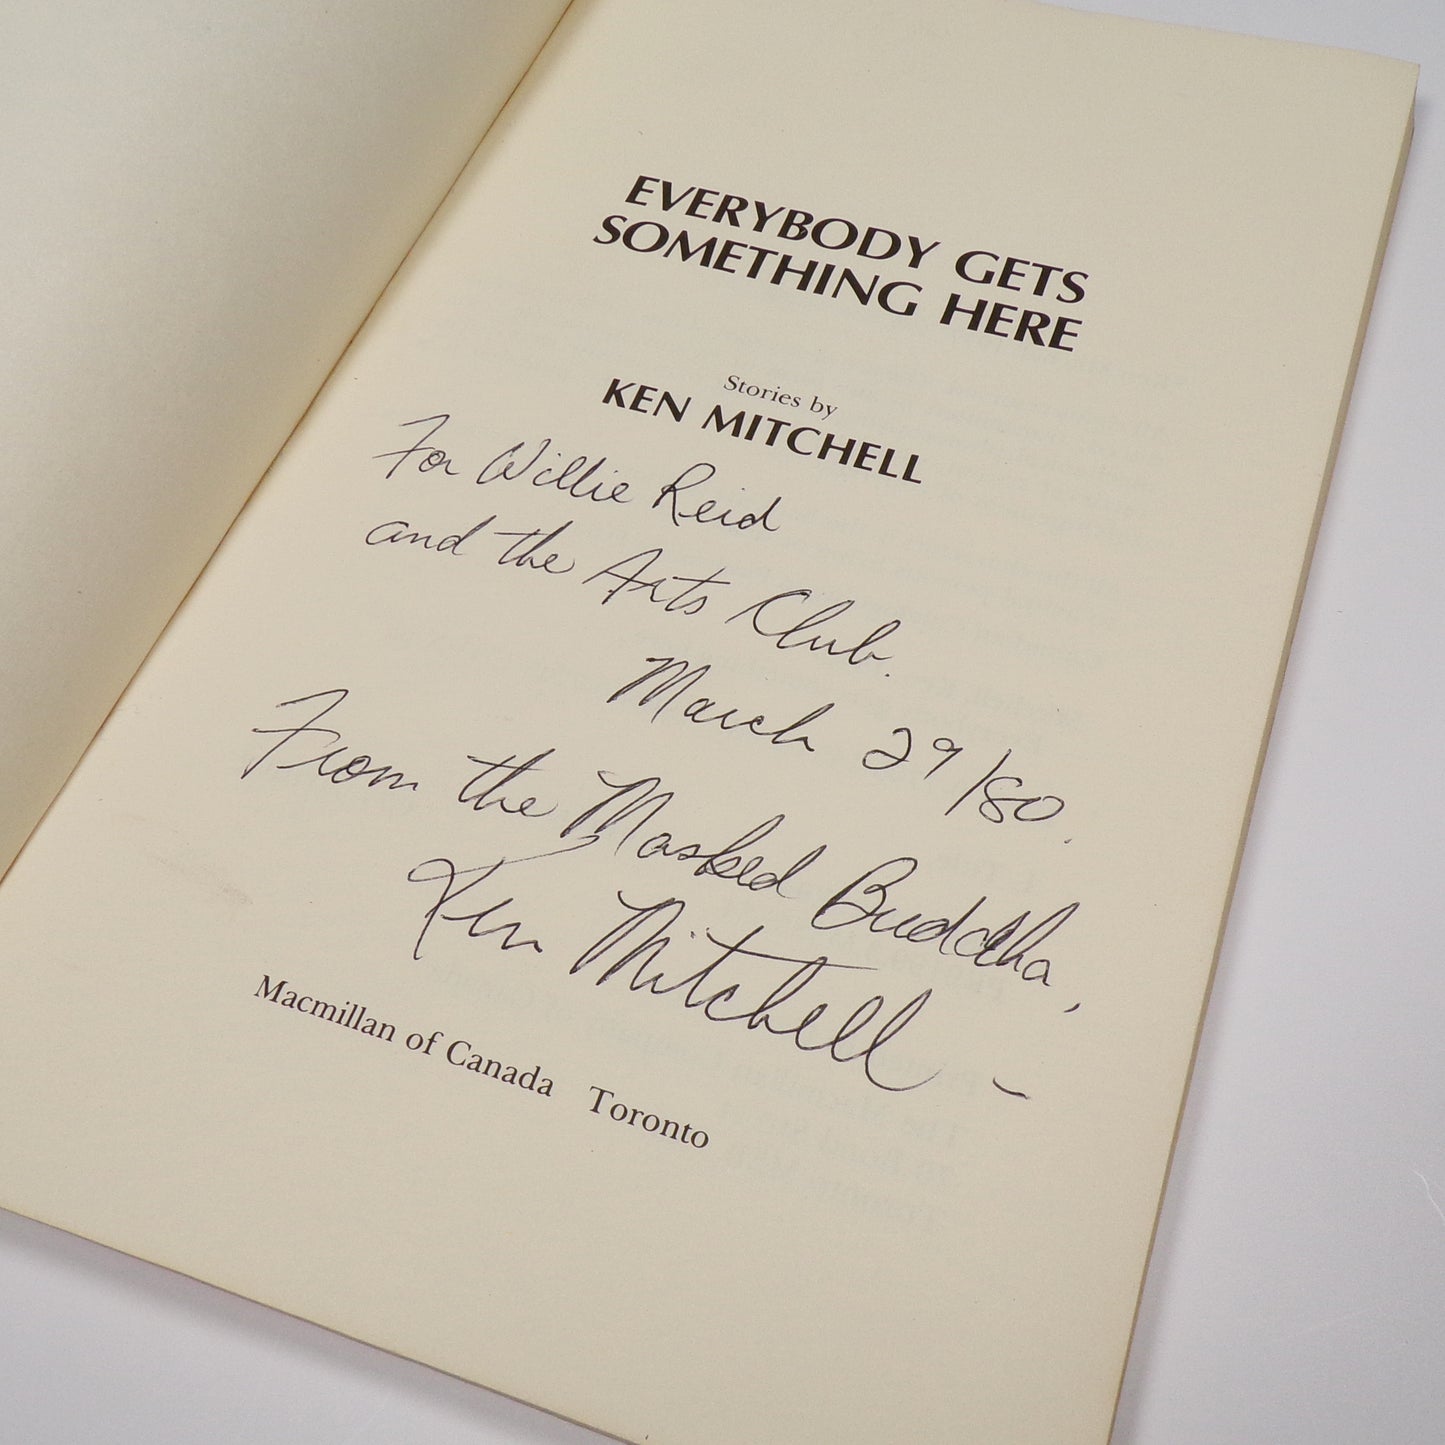 EVERYBODY GETS
SOMETHING HERE
Stories by
KEN MITCHELL
For Willie Reid
and the Arts Club.
March 29/80.
From the Masked Buddha,
Ken Mitchell –
Macmillan of Canada Toronto